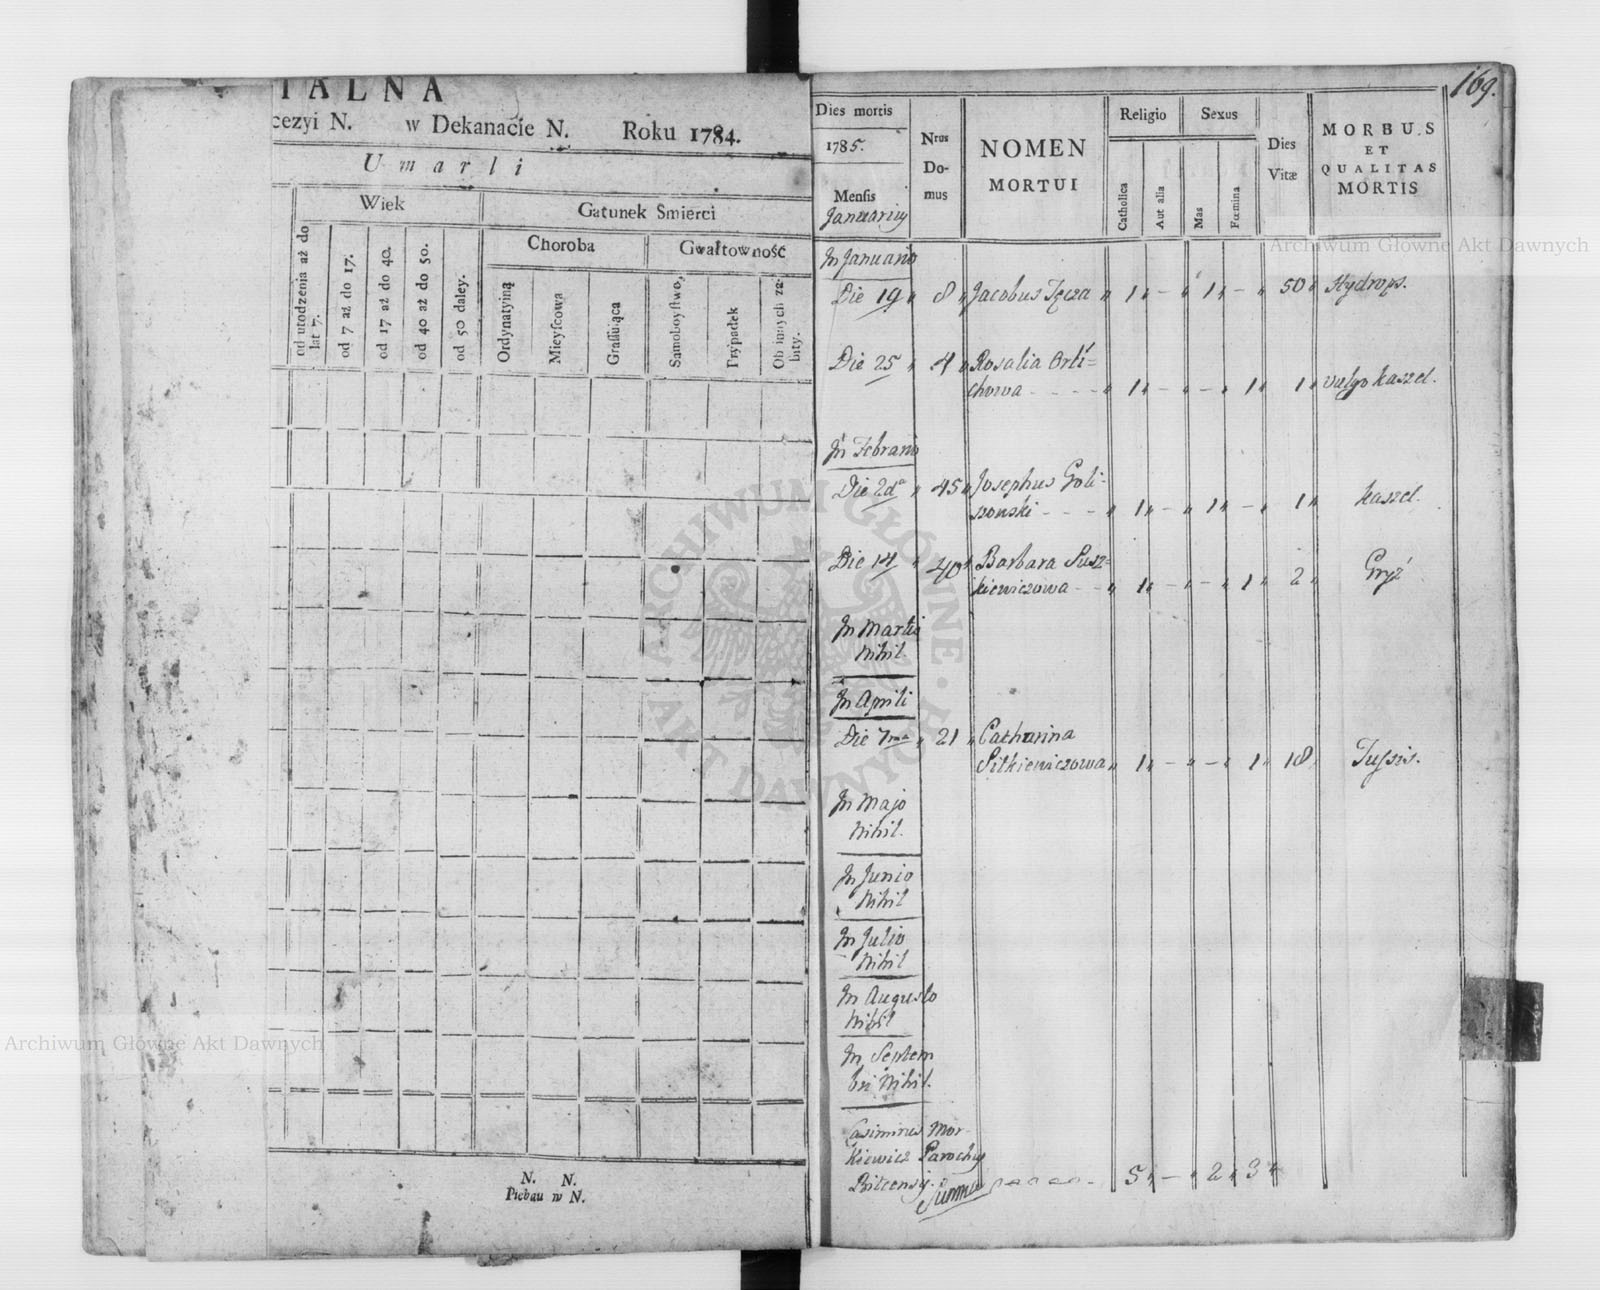 TALNA
cezyi N. w Dekanacie N. Roku 1784.
Umarli
Wiek
Gatunek Smierci
Choroba
Gwałtowność
od urodzenia aż do lat 7.
od 7 aż do 17.
od 17 aż do 40.
od 40 aż do 50.
od 50 daley.
Ordynatyiną
Mieyſcowa
Graſſuiąca
Samoboyſtwo,
Przypadek
Ob innych za-
bity.
N. N.
Pleban w N.
169.
Dies mortis
1785.
Menſis
Januarius
Nrus
Do-
mus
NOMEN
MORTUI
Religio
Catholica
Aut alia
Sexus
Mas
Fœmina
Dies
Vitæ
MORBUS
ET
QUALITAS
MORTIS
In Januario
Die 19 8 Jacobus Tęcza 1 - 1 - 50 Hydrops.
Die 25 4 Rosalia Orli=
chowa - - - - 1 - - 1 1 vulgo kaszel.
In Febrario
Die 2da 45 Josephus Goli-
szowski - - - 1 - 1 - 1 kaszel.
Die 14 40 Barbara Susz=
kiewiczowa - - 1 - - 1 2 Gryź
In Martio
Nihil.
In Aprili
Die 7ma 21 Catharina
Sitkiewiczowa 1 - - 1 18 Tuſsis.
In Majo
Nihil.
In Junio
Nihil
In Julio
Nihil
In Augusto
Nihil
In Septem
bri Nihil.
Casimirus Mor-
kiewicz Parochus
Summa - - - - 5 - 2 3
ARCHIWUM GŁÓWNE AKT DAWNYCH
Archiwum Główne Akt Dawnych
Archiwum Główne Akt Dawnych